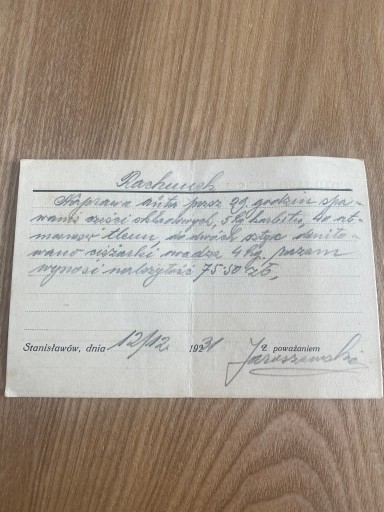 Rachunek
Naprawa auta przez 29 godzin spa-
wanie części składowych, 5 Kg karbitu, 40 at-
mosfer tlenu, do dwóch sztyc
wano ciężarki wadze 4 Kg. razem
wynosi należytość 75.50 zł,
Stanisławów, dnia 12/12 1931 Z poważaniem
Jaruszewski